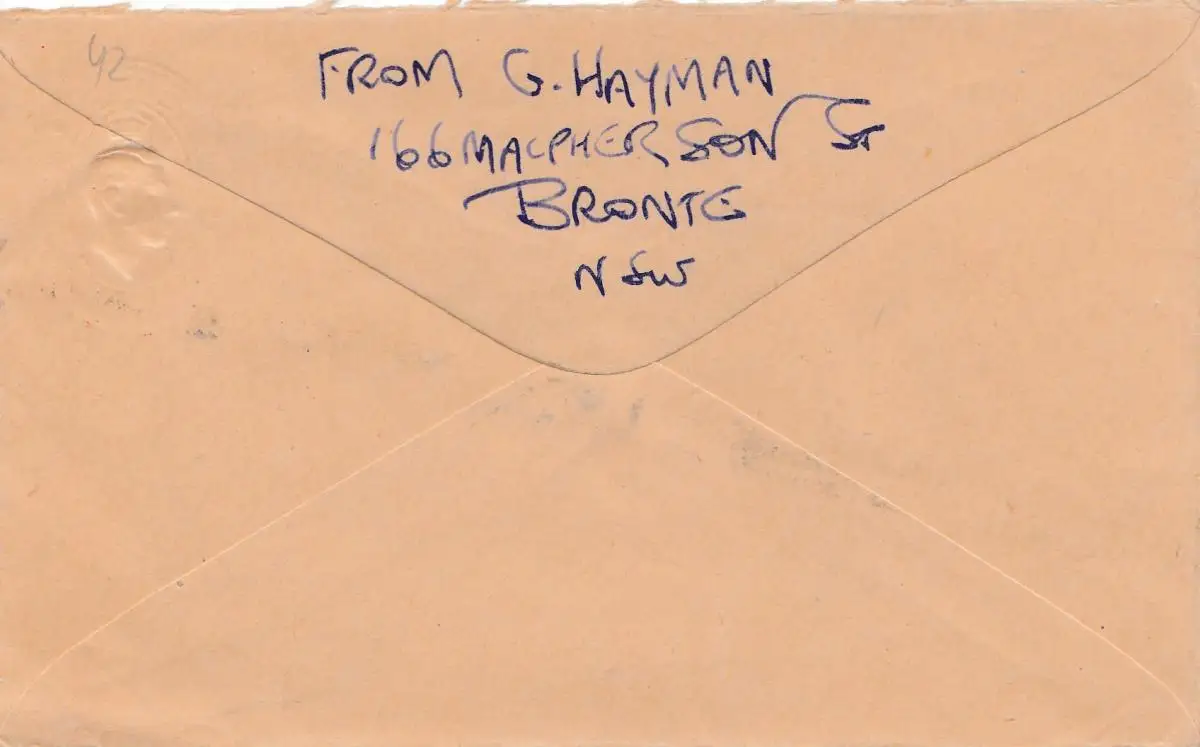 42
FROM G. HAYMAN
166 MACPHERSON ST
BRONTE
NSW